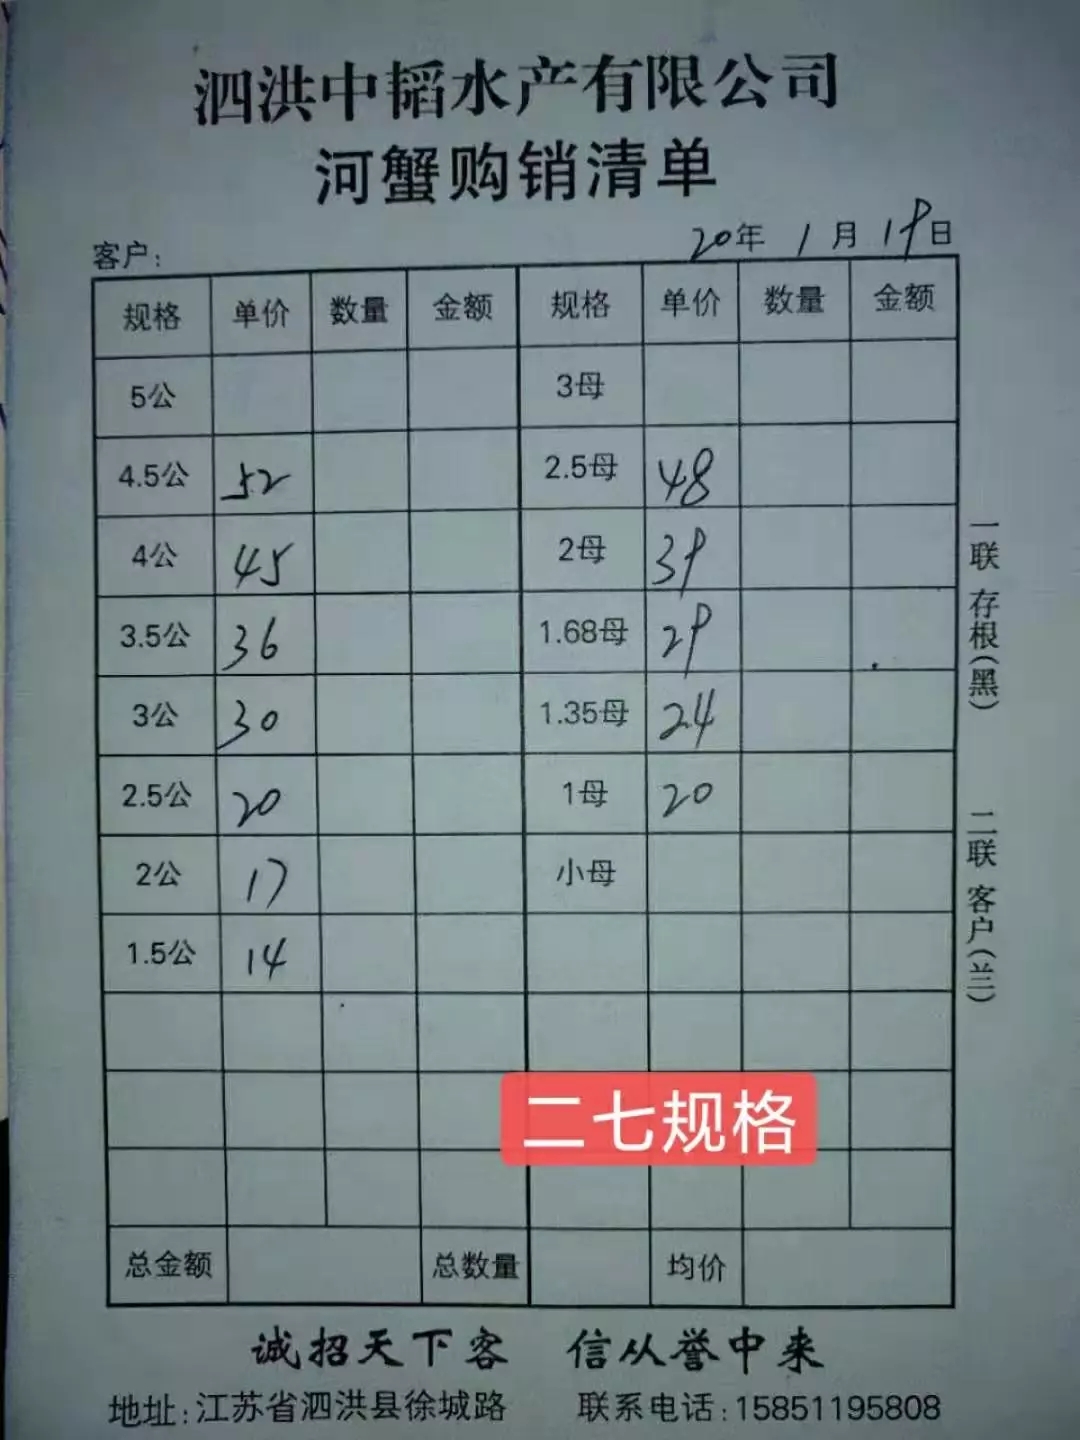 泗洪中韬水产有限公司
河蟹购销清单
客户: 20年 1月 19日
规格 单价 数量 金额 规格 单价 数量 金额
5公 3母
4.5公 52 2.5母 48
4公 45 2母 39
3.5公 36 1.68母 29
3公 30 1.35母 24
2.5公 20 1母 20
2公 17 小母
1.5公 14
二七规格
总金额 总数量 均价
一联 存根(黑)
二联 客户(兰)
诚招天下客 信从誉中来
地址:江苏省泗洪县徐城路 联系电话:15851195808